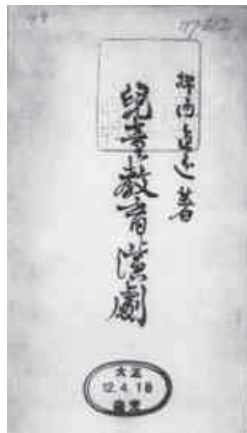 坪内逍遙著
兒童教育演劇
大正
12.4.18